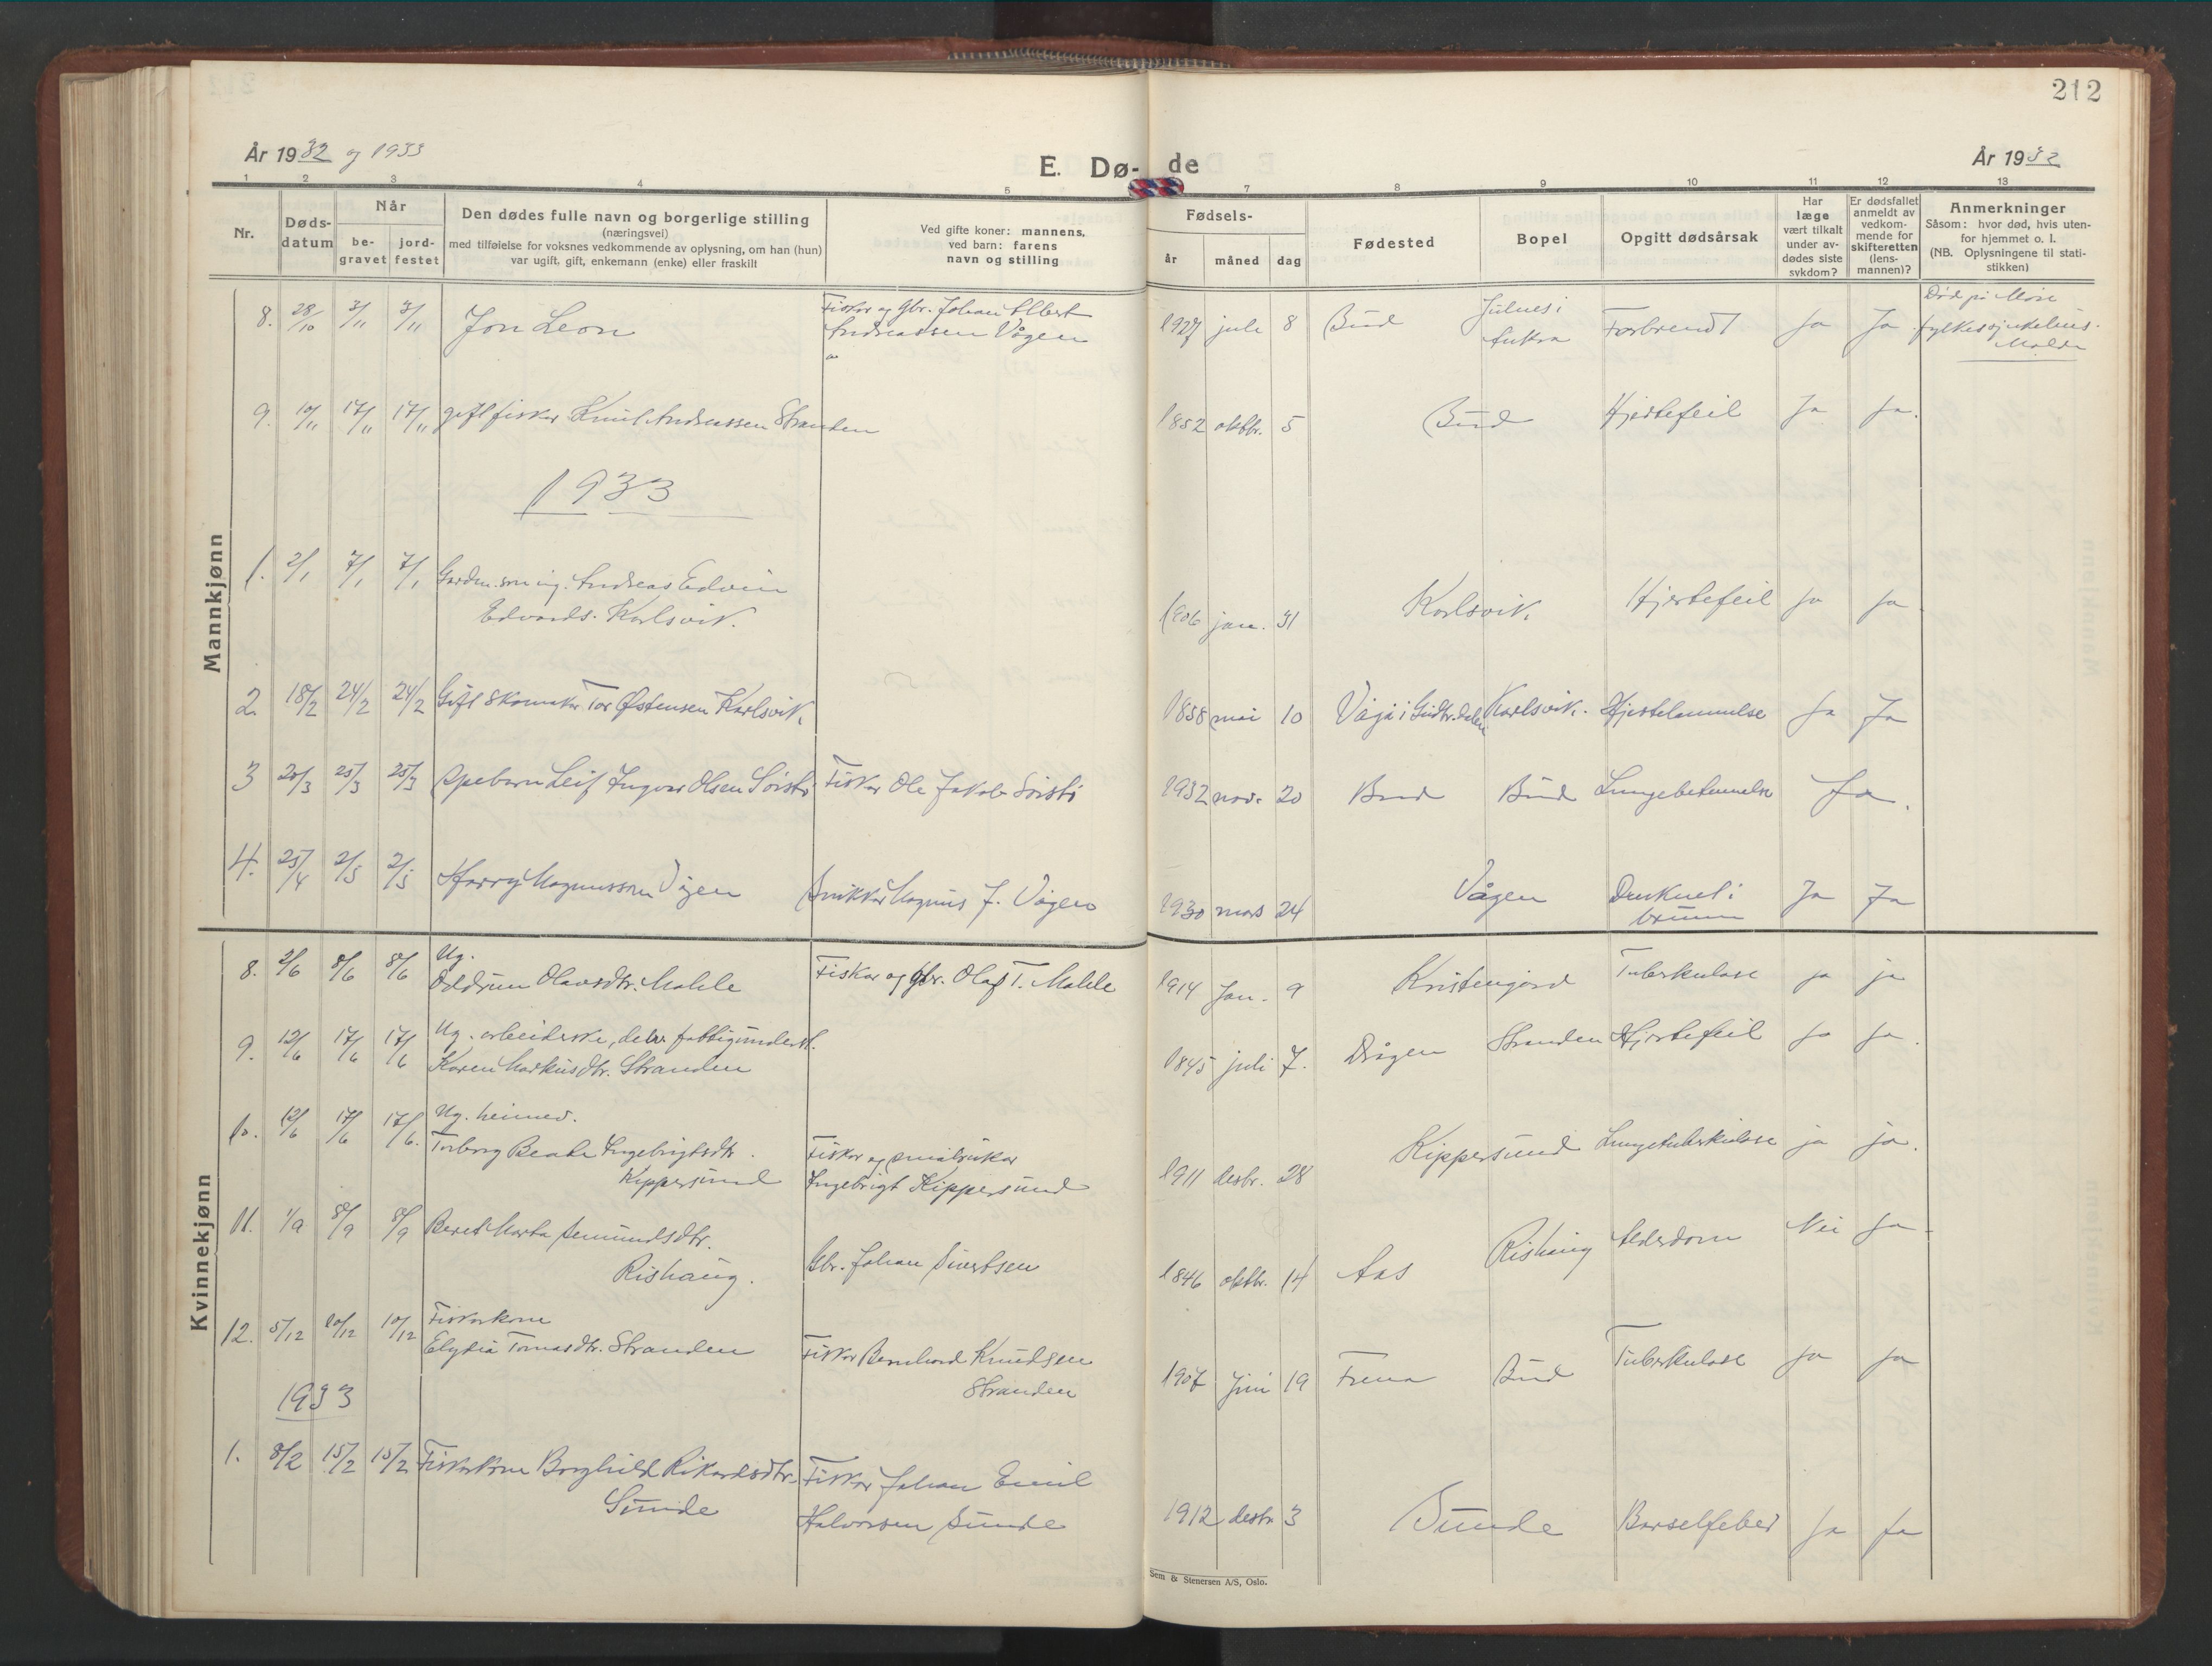 212
År 1932 og 1933
E. Dø- de
År 1932
1 2 3 4 5 7 8 9 10 11 12 13
Nr.
Døds-
datum
Når
be-
gravet
jord-
festet
Den dødes fulle navn og borgerlige stilling
(næringsvei)
med tilføielse for voksnes vedkommende av oplysning, om han (hun)
var ugift, gift, enkemann (enke) eller fraskilt
Ved gifte koner: mannens,
ved barn: farens
navn og stilling
Fødsels-
år måned dag
Fødested
Bopel
Opgitt dødsårsak
Har
læge
vært tilkalt
under av-
dødes siste
sykdom?
Er dødsfallet
anmeldt av
vedkom-
mende for
skifteretten
(lens-
mannen)?
Anmerkninger
Såsom: hvor død, hvis uten-
for hjemmet o. l.
(NB. Oplysningene til stati-
stikken)
Mannkjønn
8. 28/10 3/11 3/11 Jon Leon
Fisker og Gbr. Johan Albert
Andreassen Vågen
1927 juli 8 Bud Julnes i
Aukra
Forbrendt Ja Ja.
Død på Møre
fylkessjukehus.
Molde
9. 10/11 17/11 17/11 gift fisker Knut Andreassen Stranden 1852 oktbr. 5 Bud Hjertefeil Ja Ja.
1933
1. 2/1 7/1 7/1 Gardm.søn ug. Andreas Edvin
Edvards. Karlsvik.
1906 jan. 31 Karlsvik. Hjertefeil Ja Ja
2. 18/2 24/2 24/2 Gift skomaker Tor Østensen Karlsvik. 1858 mai 10 Vågå i Gudbr.dalen Karlsvik. Hjertelammelse Ja Ja
3 20/3 25/3 25/3 Spebarn Leif Ingvar Olsen Sørstø Fisker Ole Jakob Sørstø 1932 nov. 20 Bud Bud Lungebetennelse Ja.
4. 25/4 2/5 2/5 Harry Magnussen Vågen Snikker Magnus J. Vågen 1930 mars 24 Vågen Druknet i
brønn
Ja Ja
Kvinnekjønn
8. 2/6 8/6 8/6 Ug.
Oddrun Olavsdtr. Malele
Fisker og gbr. Olaf T. Malele 1914 Jan. 9 Kristengård Tuberkulose ja ja
9. 12/6 17/6 17/6 Ug. arbeiderske, delv. fattigunderst.
Karen Markusdtr. Stranden
1845 juli 7. Drågen Stranden Hjertefeil Ja Ja.
10. 12/6 17/6 17/6. Ug. heimev.
Torborg Beate Ingebrigtsdtr.
Kippersund
Fisker og småbruker
Ingebrigt Kippersund
1911 desbr. 28 Kippersund Lungetuberkulose ja ja.
11. 1/9 8/9 8/9 Beret Marta Aemundsdtr.
Rishaug.
Gbr. Johan Sivertsen
1846 oktbr. 14 Aas Rishaug Alderdom Nei Ja
12. 5/12 10/12 10/12 Fiskerkone
Elydia Tomasdtr. Stranden
Fisker Bernhard Knudsen
Stranden
1907 Juni 19 Frena Bud Tuberkulose Ja Ja
1933
1. 8/2 15/2 15/2 Fiskerkone Borghild Rikardsdtr.
Sunde
Fisker Johan Emil
Halvorsen Sunde
1912 desbr 3 Sunde Barselfeber Ja Ja
Sem & Stenersen A/S, Oslo.